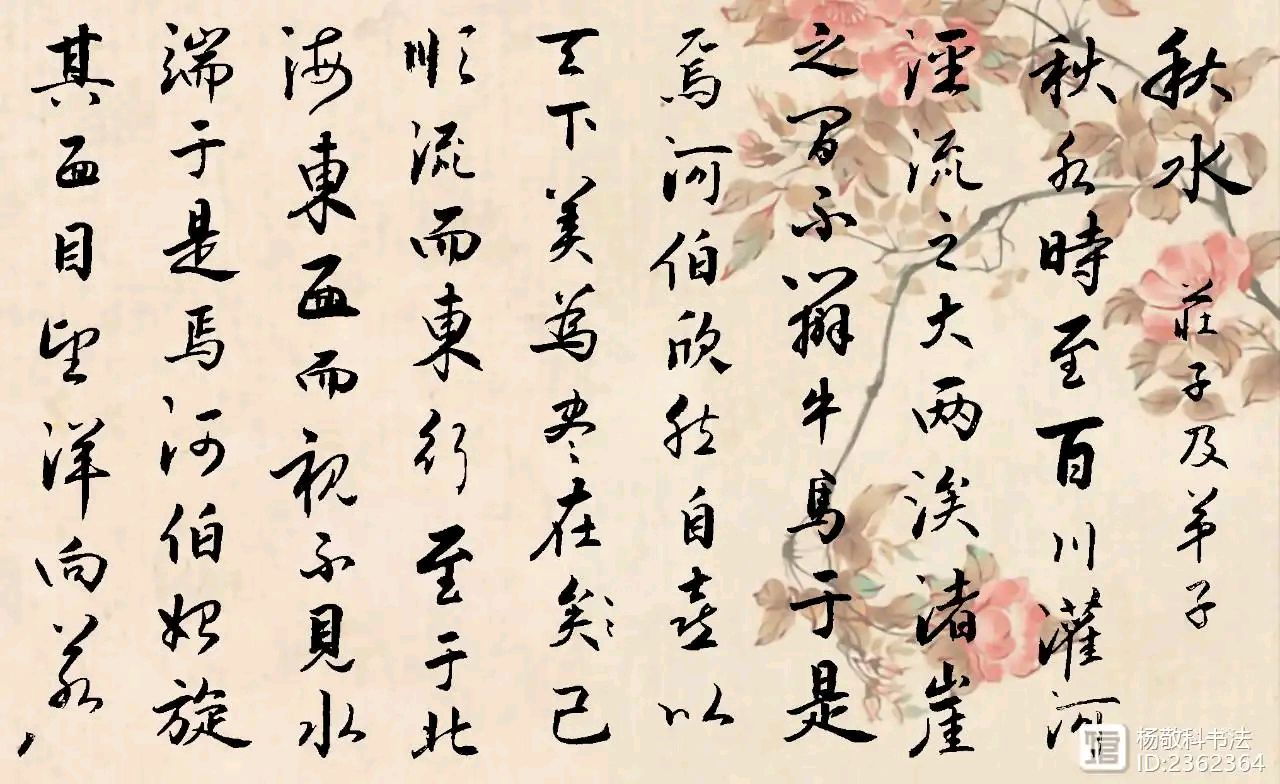 秋水 莊子及弟子
秋水時至百川灌河
涇流之大两涘渚崖
之間不辨牛馬于是
焉河伯欣然自喜以
天下美為尽在矣己
順流而東行至于北
海東面而視不見水
端于是焉河伯始旋
其面目望洋向若，
杨敬科书法
ID:2362364